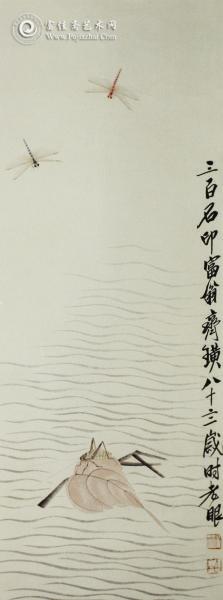 富佳斋艺术网
www.Fujiazhai.com
三百石印富翁齊璜八十三歲时老眼